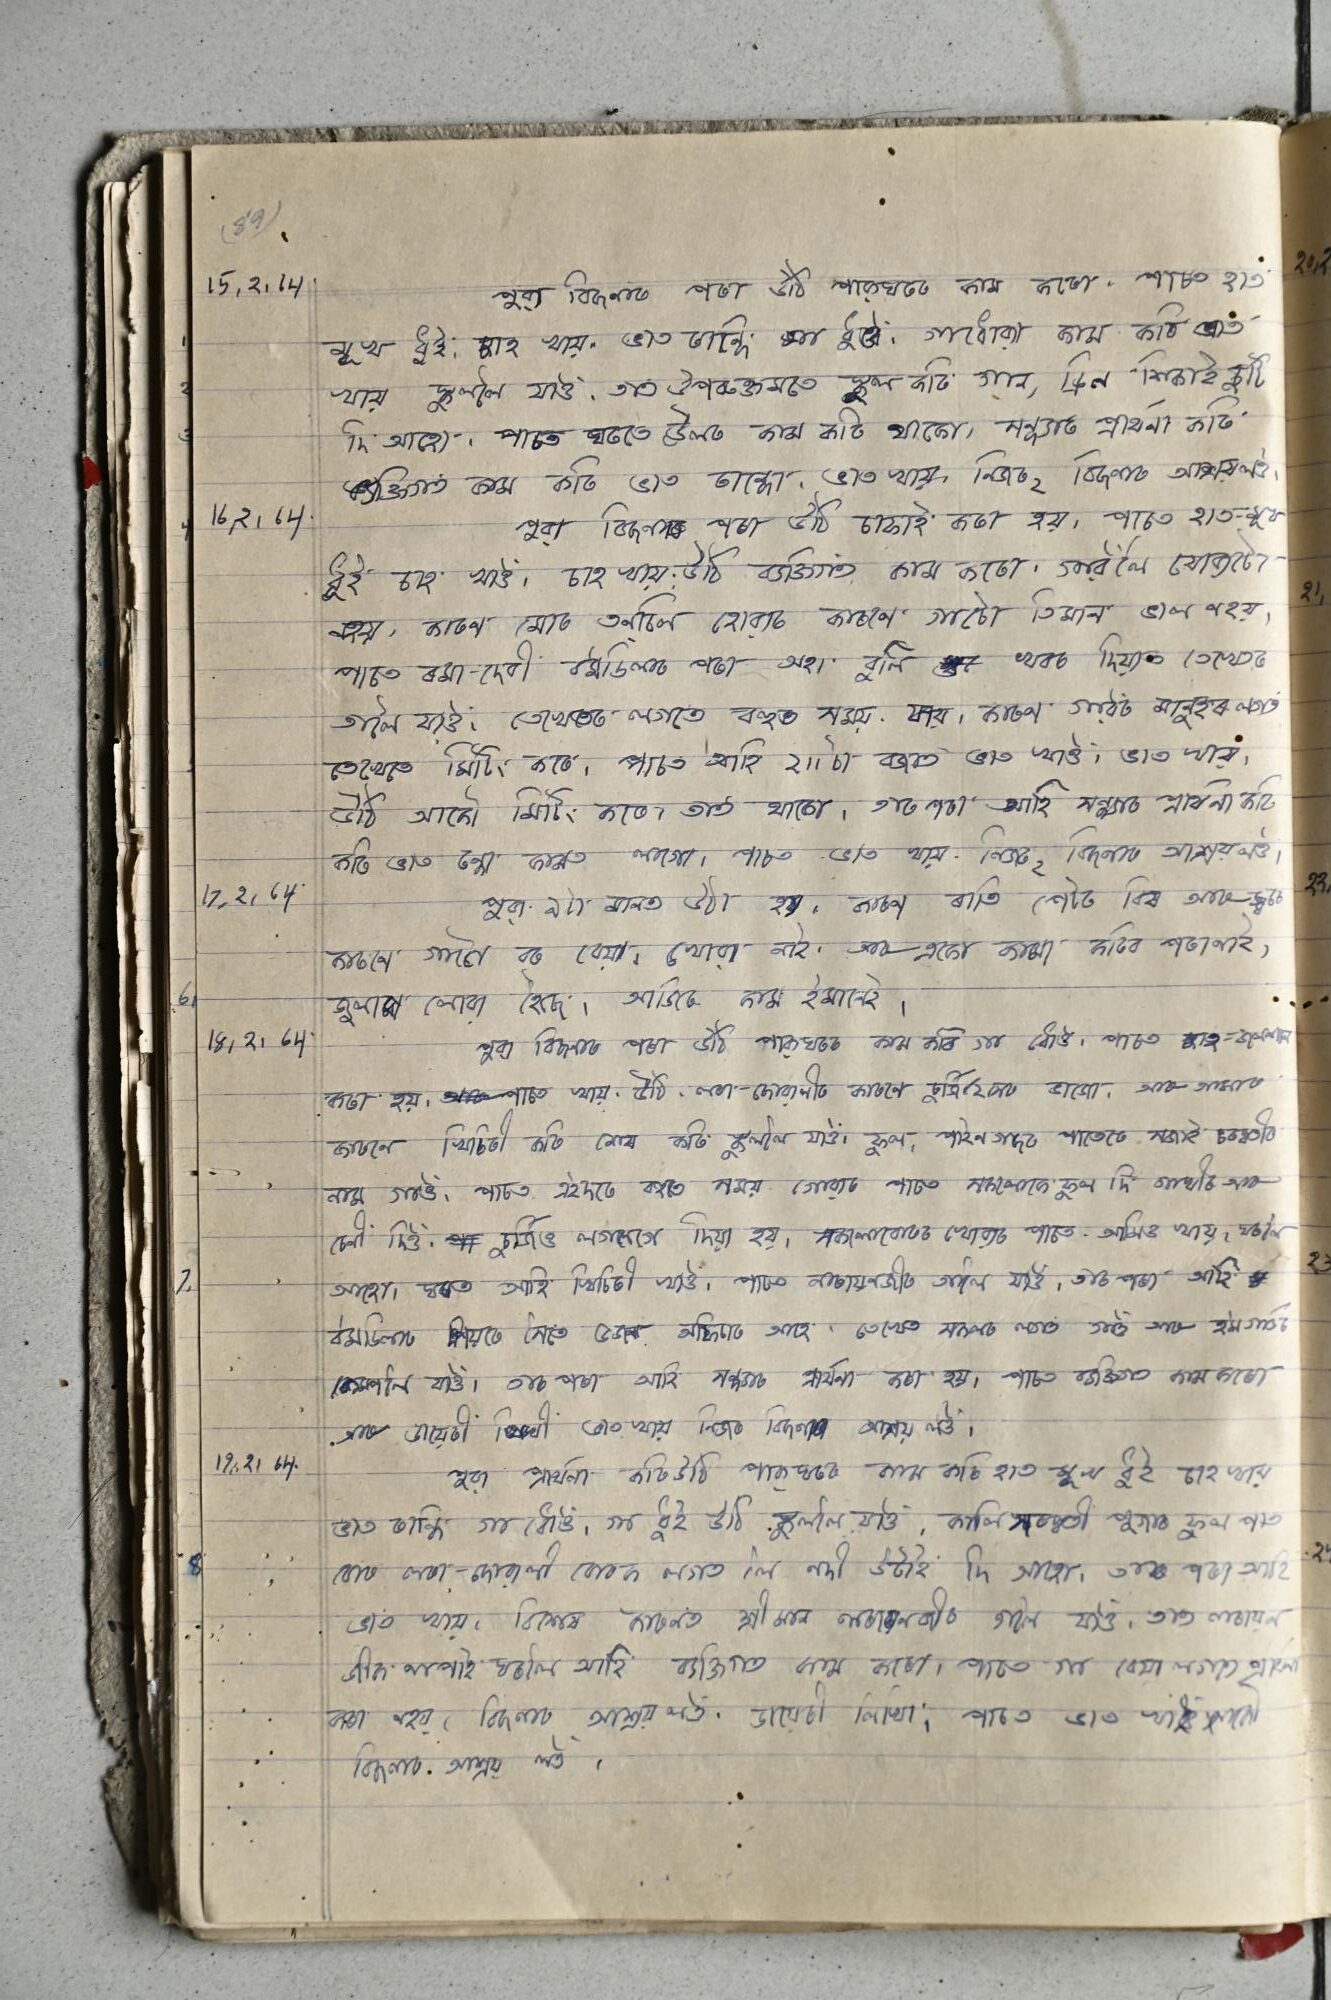 (৪৭)
15.2.64. পুৱা বিছনাৰ পৰা উঠি পাকঘৰৰ কাম কৰো। পাচত হাত
মুখ ধুই চাহ খায়। ভাত ৰান্ধি গা ধুওঁ। গাধোৱা কাম কৰি ভাত
খায় স্কুললৈ যাওঁ। তাত উপৰুক্তমতে স্কুল কৰি গান, ড্ৰিল শিকাই ছুটি
দি আহো। পাচত ঘৰতে উলৰ কাম কৰি থাকো। সন্ধ্যাত প্ৰাৰ্থনা কৰি
ব্যক্তিগত কাম কৰি ভাত ৰান্ধো। ভাত খায়, নিজৰ বিছনাত আশ্ৰয় লওঁ।
16.2.64. পুৱা বিছনাৰ পৰা উঠি চাফাই কৰা হয়। পাচত হাত-মুখ
ধুই চাহ খাওঁ। চাহ খায় উঠি ব্যক্তিগত কাম কৰো। গাৱঁলৈ যোৱাটো
নহয়, কাৰণ মোৰ হোৱাৰ কাৰণে গাটো তিমান ভাল নহয়,
পাচত ৰমা-দেৱী বমডিলাৰ পৰা অহা বুলি খবৰ দিয়াত তেখেতৰ
তালৈ যাওঁ। তেখেতৰ লগতে বহুত সময় যায়, কাৰণ গাৱঁৰ মানুহৰ লগত
তেখেতে মিটিং কৰে। পাচত আহি ২॥ টা বজাত ভাত খাওঁ। ভাত খায়,
উঠি আকৌ মিটিং কৰে, তাত থাকো। তাৰ পৰা আহি সন্ধ্যাত প্ৰাৰ্থনা কৰি
কৰি ভাত ৰন্ধা কামত লাগো। পাচত ভাত খায় নিজৰ বিছনাত আশ্ৰয় লওঁ।
17.2.64. পুৱা মানত উঠা হয়, কাৰণ ৰাতি পেটৰ বিষ আৰু জ্বৰৰ
কাৰণে গাটো বৰ বেয়া। খোৱা নাই। আৰু একো কামো কৰিব পৰা নাই,
জুলাপ লোৱা হৈছে। আজিৰ কাম ইমানেই।
18.2.64. পুৱা বিছনাৰ পৰা উঠি পাকঘৰৰ কাম কৰি গা ধোওঁ। পাচত চাহ-জলপান
কৰা হয়। পাচত খায় উঠি লৰা-ছোৱালীৰ কাৰণে ভাজো, আৰু আমাৰ
কাৰণে খিচিৰী কৰি শেষ কৰি স্কুললৈ যাওঁ। ফুল, পাইনগছৰ পাতেৰে সজাই চৰস্বতীৰ
নাম গাওঁ। পাচত এইদৰে বহুত সময় যোৱাৰ পাচত সকলোকে ফুল দি আৰু
দিওঁ। লগে লগে দিয়া হয়, সকলোবোৰৰ খোৱাৰ পাচত আমিও খায়, ঘৰলৈ
আহো। ঘৰত আহি খিচিৰী খাওঁ। পাচত নাৰায়নজীৰ তালৈ যাওঁ, তাৰ পৰা আহি
বমডিলাৰ আহে। তেখেত সকলৰ লগত গাওঁ আৰু
যাওঁ। তাৰ পৰা আহি সন্ধ্যাত প্ৰাৰ্থনা কৰা হয়। পাচত ব্যক্তিগত কাম কৰো
আৰু ডায়েৰী লিখী ভাত খায় নিজৰ বিছনাত আশ্ৰয় লওঁ।
19.2.64. পুৱা প্ৰাৰ্থনা কৰি উঠি পাকঘৰৰ কাম কৰি হাত মুখ ধুই চাহ খায়
ভাত ৰান্ধি গা ধোওঁ। গা ধুই উঠি স্কুললৈ যাওঁ, কালি সৰস্বতী পুজাৰ ফুল পাত
বোৰ লৰা-ছোৱালী বোৰৰ লগত লৈ নদী উটাই দি আহো। তাৰ পৰা আহি
ভাত খায়। বিশেষ কাৰণত শ্ৰীমান নাৰায়নজীৰ তালৈ যাওঁ, তাত নাৰায়ন
জীক নাপাই ঘৰলৈ আহি ব্যক্তিগত কাম কৰো। পাচত গা বেয়া লগাত প্ৰাৰ্থনা
কৰা নহয়, বিছনাত আশ্ৰয় লওঁ। ডায়েৰী লিখি, পাচত ভাত
বিছনাত আশ্ৰয় লওঁ।